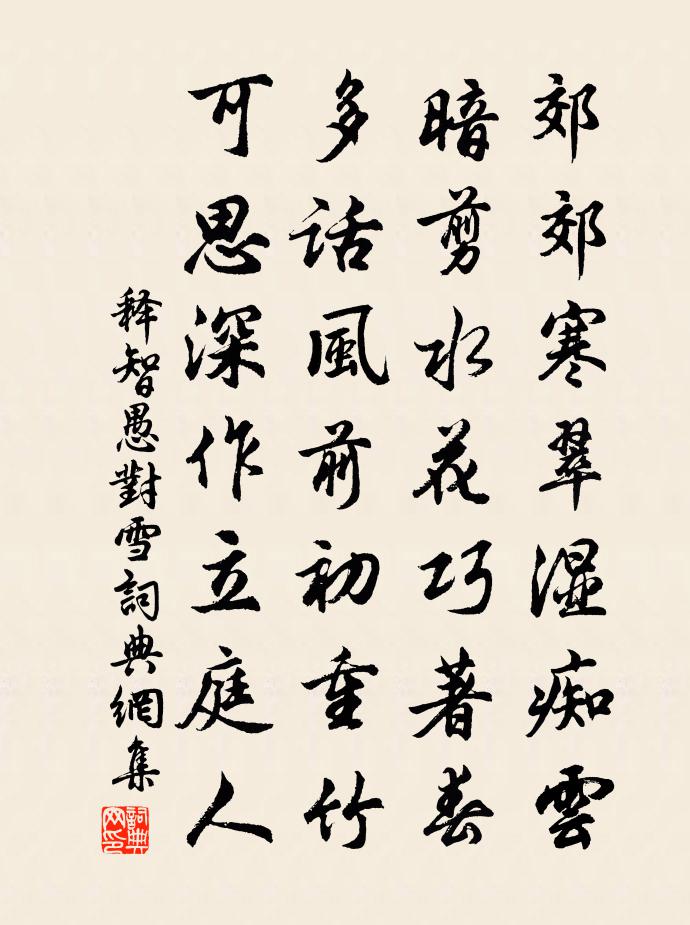 郊郊寒翠湿痴雲
暗剪水花巧著春
多話風前初重竹
可思深作立庭人
释智愚對雪詞典網集
詞典網印